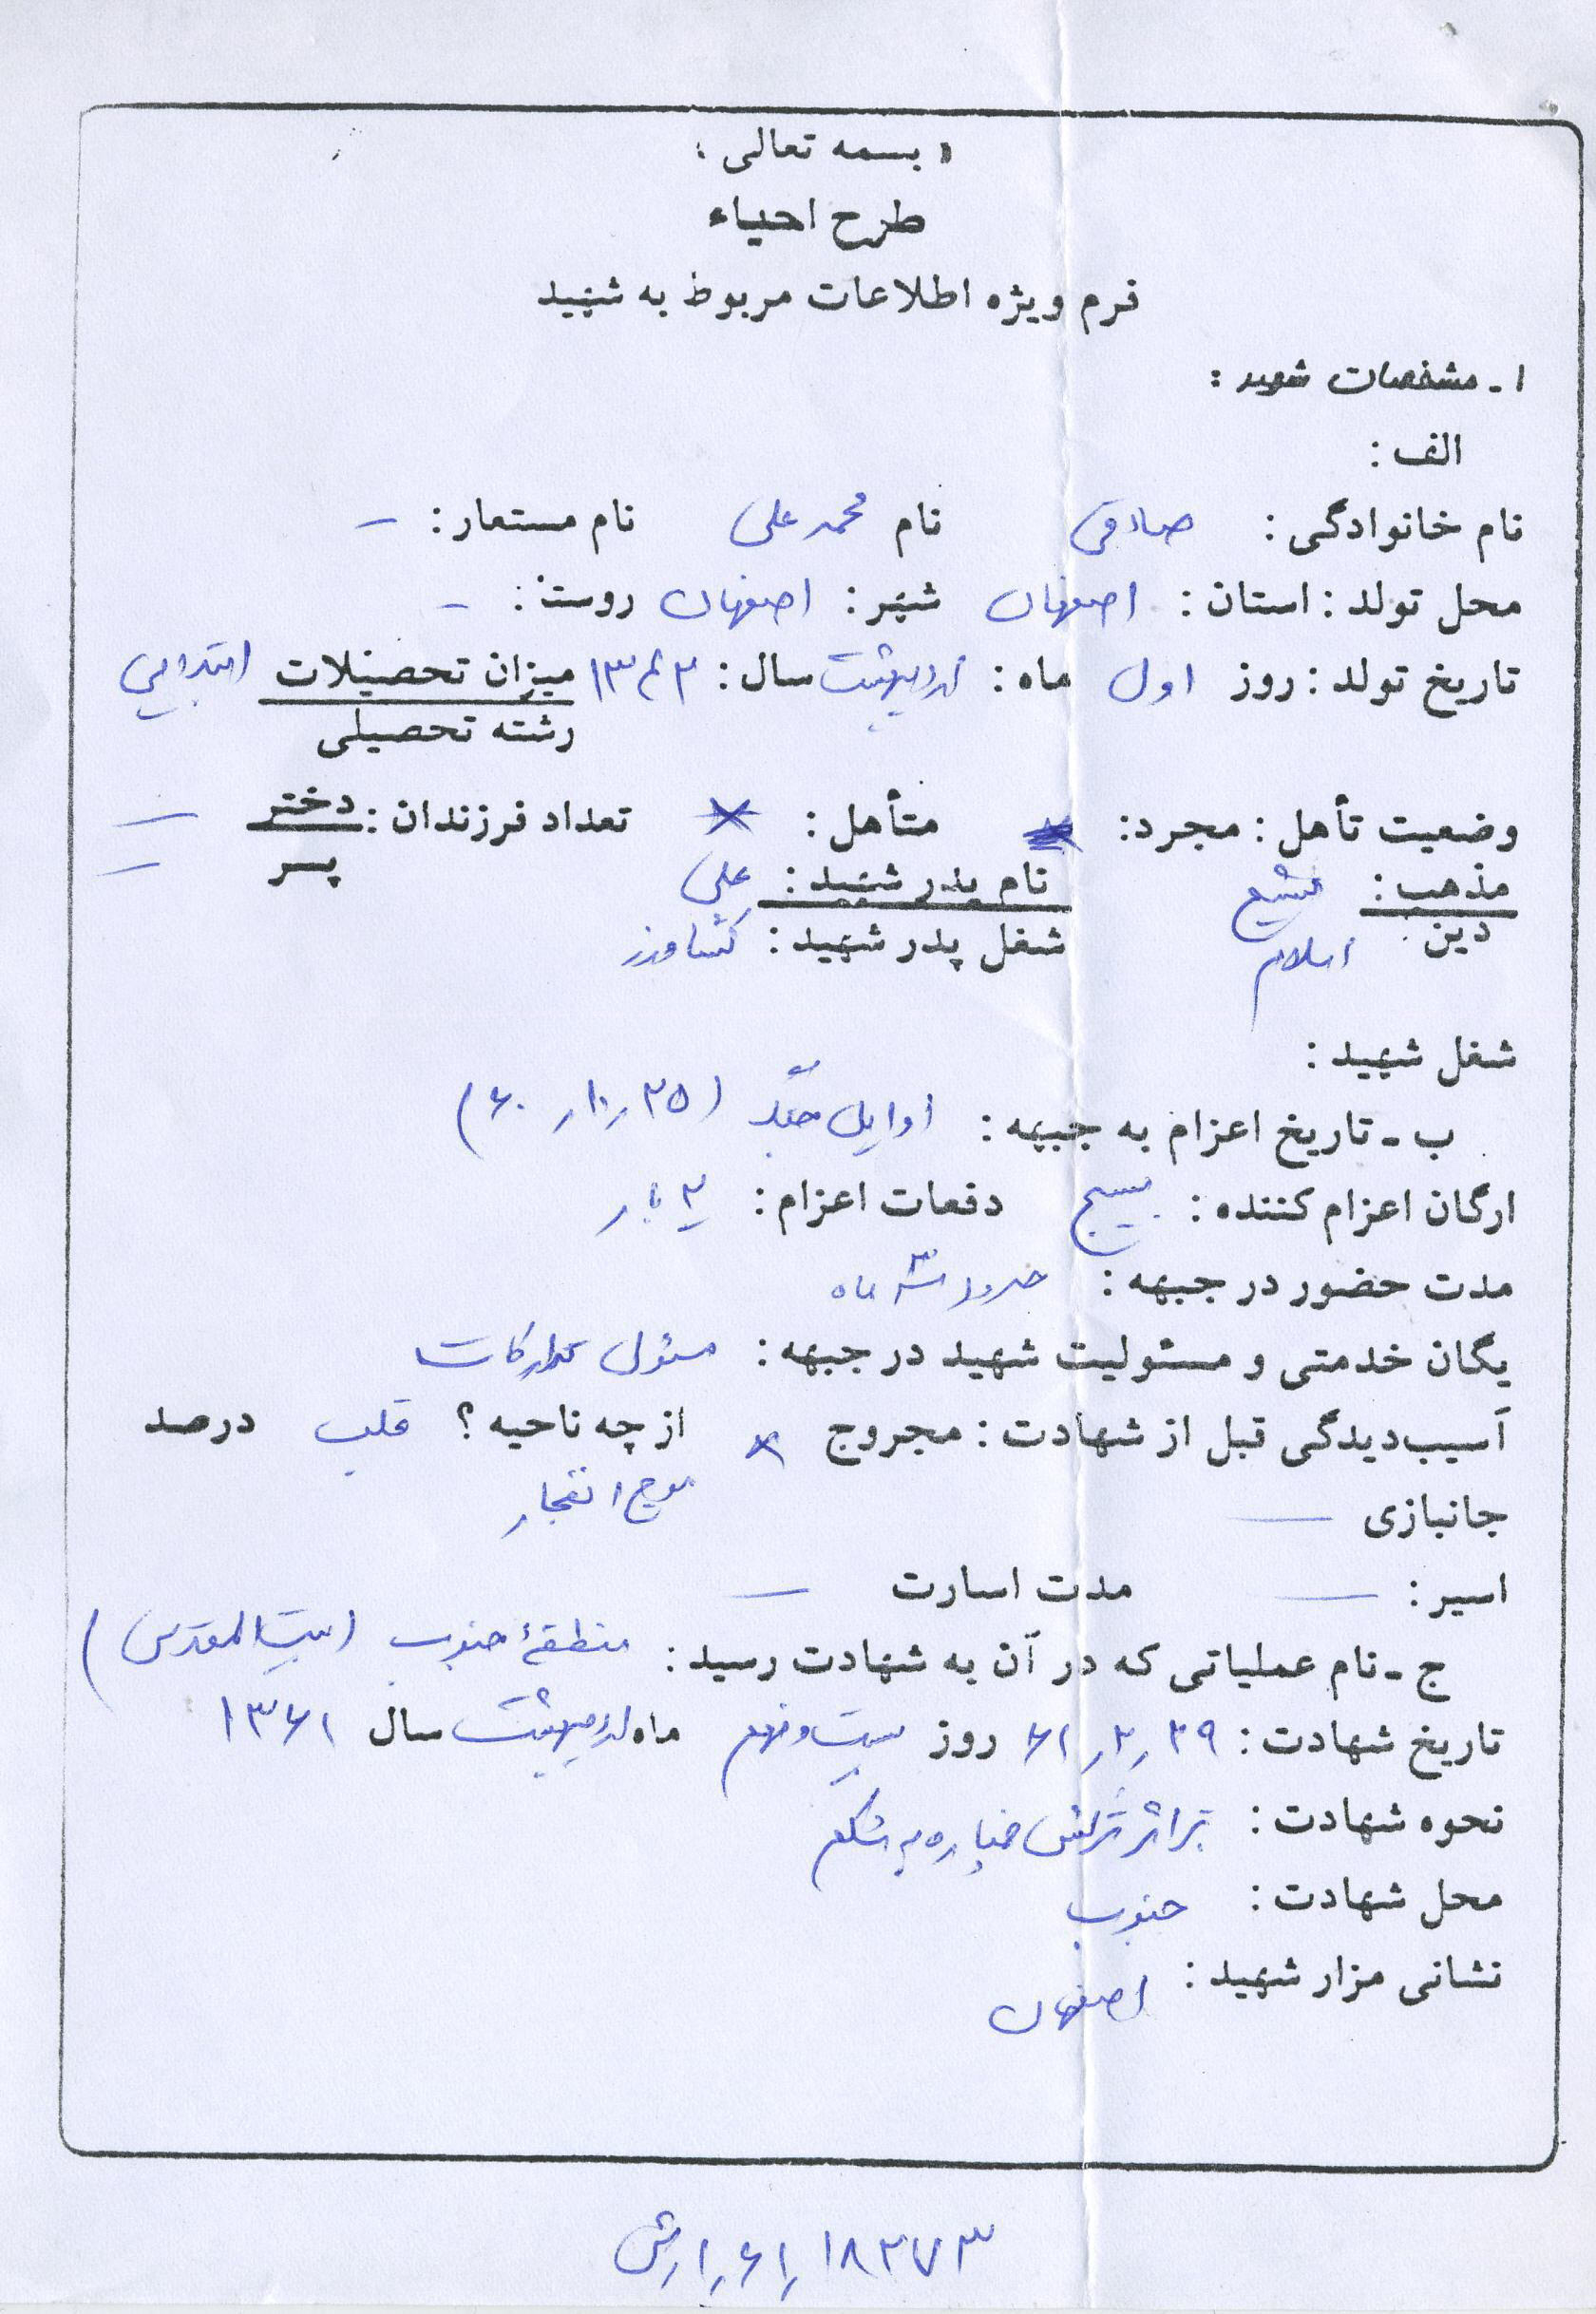 « بسمه تعالی »
طرح احیاء
فرم ویژه اطلاعات مربوط به شهید
۱ـ مشخصات شهید :
الف :
نام خانوادگی : صادقی نام محمد علی نام مستعار : ـ
محل تولد : استان : اصفهان شهر : اصفهان روستا : ـ
تاریخ تولد : روز اول ماه : اردیبهشت سال : ۱۳۴۲ میزان تحصیلات ابتدایی
رشته تحصیلی
وضعیت تأهل : مجرد : متأهل : × تعداد فرزندان : دختر —
پسر —
مذهب : تشیع نام پدر شهید : علی
دین اسلام شغل پدر شهید : کشاورز
شغل شهید :
ب ـ تاریخ اعزام به جبهه : اوایل جنگ (۶۰٫۱۰٫۲۵)
ارگان اعزام کننده : بسیج دفعات اعزام : ۲ بار
مدت حضور در جبهه : حدود ۳ ماه
یگان خدمتی و مسئولیت شهید در جبهه : مسئول تدارکات
آسیب‌دیدگی قبل از شهادت : مجروح × از چه ناحیه ؟ قلب درصد
جانبازی — موج انفجار
اسیر : — مدت اسارت —
ج ـ نام عملیاتی که در آن به شهادت رسید : منطقهٔ جنوب (بیت المقدس)
تاریخ شهادت : ۶۱٫۲٫۲۹ روز بیست و نهم ماه اردیبهشت سال ۱۳۶۱
نحوه شهادت : بر اثر ترکش خمپاره به شکم
محل شهادت : جنوب
نشانی مزار شهید : اصفهان
۱۸۲۷۳٫۶۱٫۱٫ش